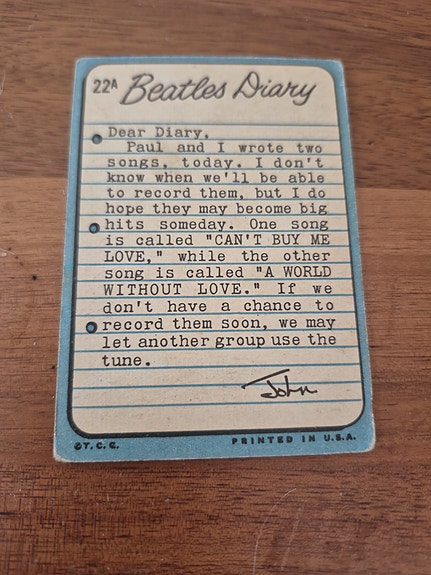 22A Beatles Diary
Dear Diary,
Paul and I wrote two
songs, today. I don't
know when we'll be able
to record them, but I do
hope they may become big
hits someday. One song
is called "CAN'T BUY ME
LOVE," while the other
song is called "A WORLD
WITHOUT LOVE." If we
don't have a chance to
record them soon, we may
let another group use the
tune.
John
©T.C.G. PRINTED IN U.S.A.